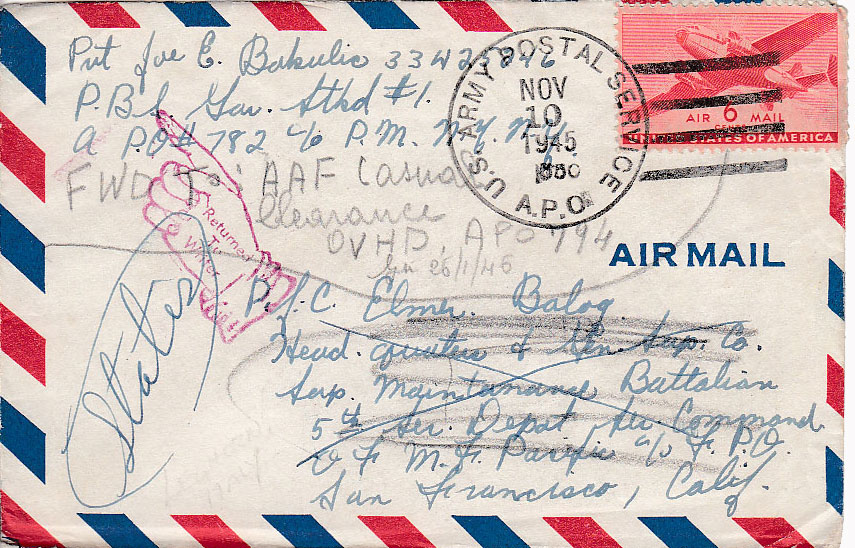 Pvt Joe E. Bakulic 33423846
P.B.S. Gar. Sthd #1.
A PO# 782 c/o P.M. N.Y. N.Y.
U.S. ARMY POSTAL SERVICE
NOV
10
1945
A.P.O.
AIR 6¢ MAIL
UNITED STATES OF AMERICA
FWD To: AAF Casual
Clearance
OVHD, APO 494
26/1/46
Returned
To
Writer
AIR MAIL
States
P.f.C. Elmer Balog
Head. quaters & Ser. Sup. Co.
Sup. Maintanance Battalian
5th Ser. Depot Ser. Command
F. M. F. Pacific c/o F.P.O.
San Francisco, Calif.